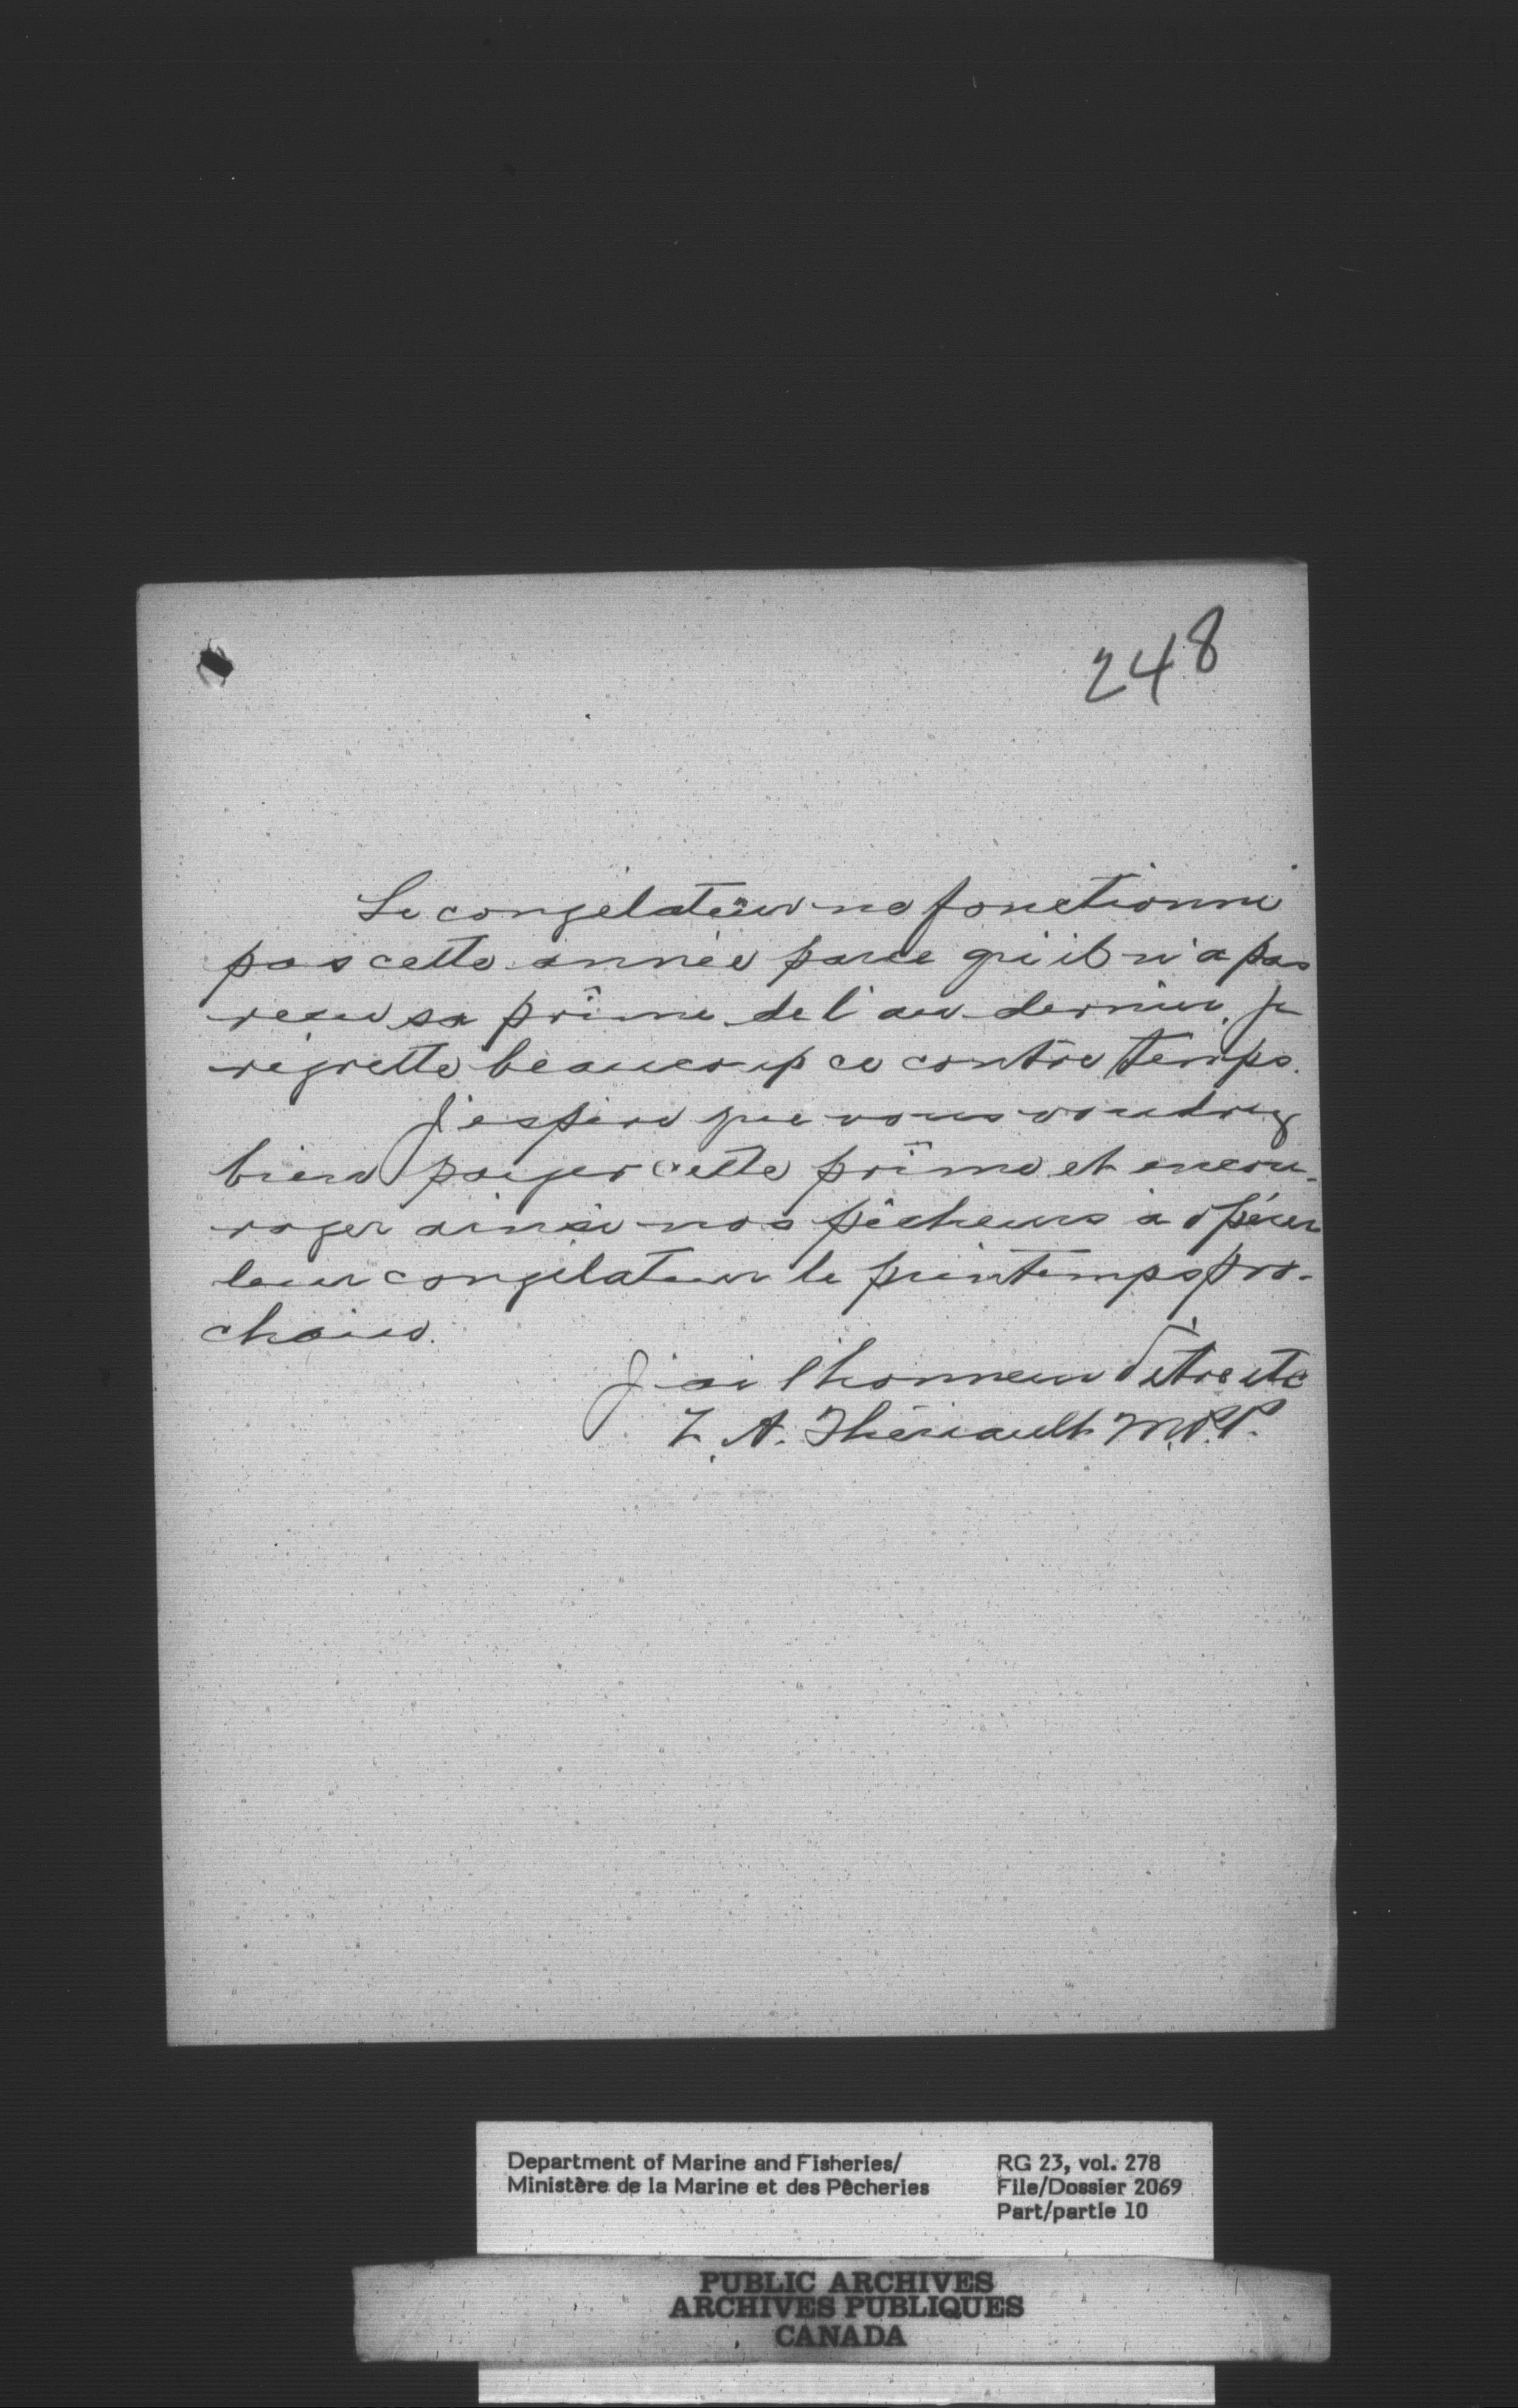 248
Le congélateur ne fonctionne
pas cette année parce qu'il n'a pas
recu sa prîme de l'an dernier. Je
régrette beaucoup ce contre temps.
J'espère que vous voudrez
bien payer cette prîme et encou-
rager ainsi nos pêcheurs à opérer
leur congélateur le printemps pro-
chain.
J'ai l'honneur d'être etc
L. A. Thériault M.P.P.
Department of Marine and Fisheries/ RG 23, vol. 278
Ministère de la Marine et des Pêcheries File/Dossier 2069
Part/partie 10
PUBLIC ARCHIVES
ARCHIVES PUBLIQUES
CANADA